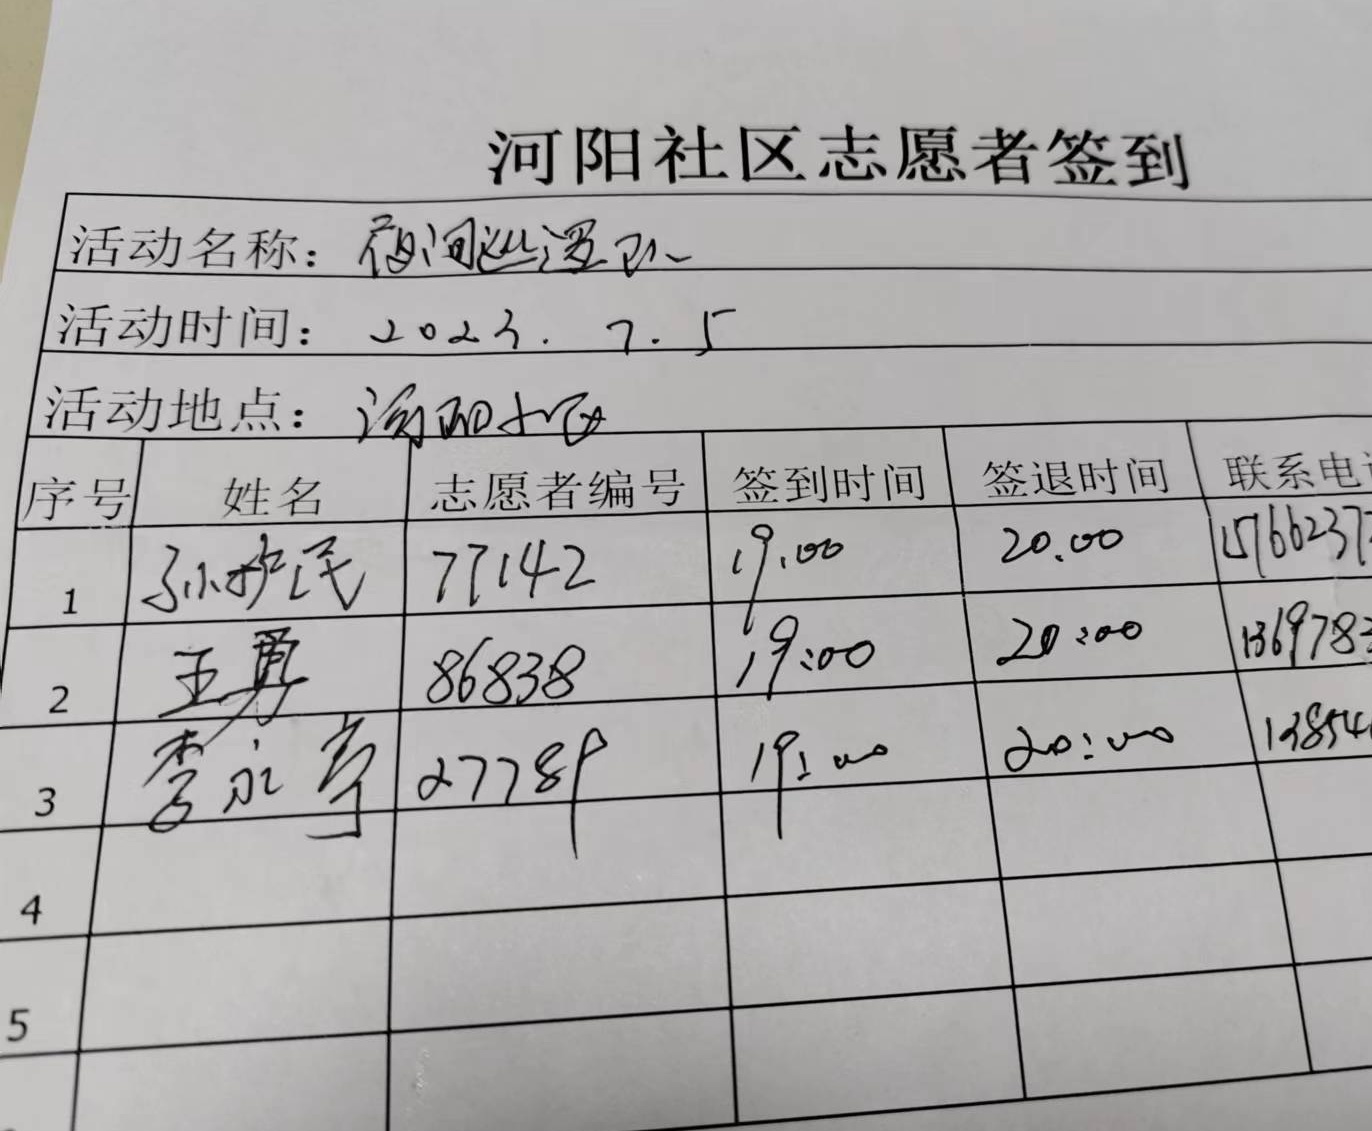 河阳社区志愿者签到
活动名称：夜间巡逻队
活动时间：2023.7.5
活动地点：河阳小区
序号 姓名 志愿者编号 签到时间 签退时间 联系电
1 孙 民 77142 19.00 20.00 15766237
2 王勇 86838 19:00 20:00 1369783
3 李永亭 27789 19:00 20:00 13854
4
5